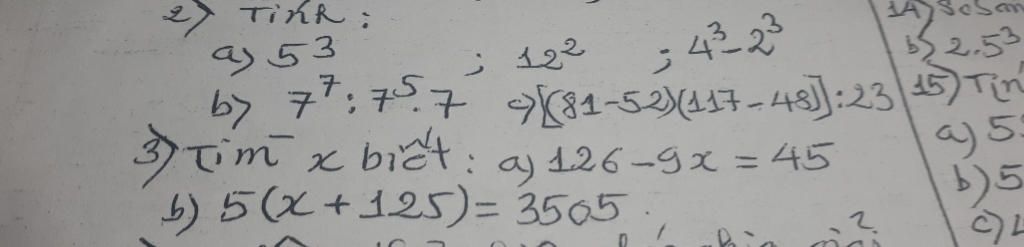 2) Tính:
a) 5³ ; 12² ; 4³-2³
b) 7⁷:7⁵.7 c) [(81-52)(117-48)]:23
3) Tìm x biết: a) 126-9x = 45
b) 5(x+125) = 3505.
14) So
b) 2.5³
15) Tín
a) 5
b) 5
c)